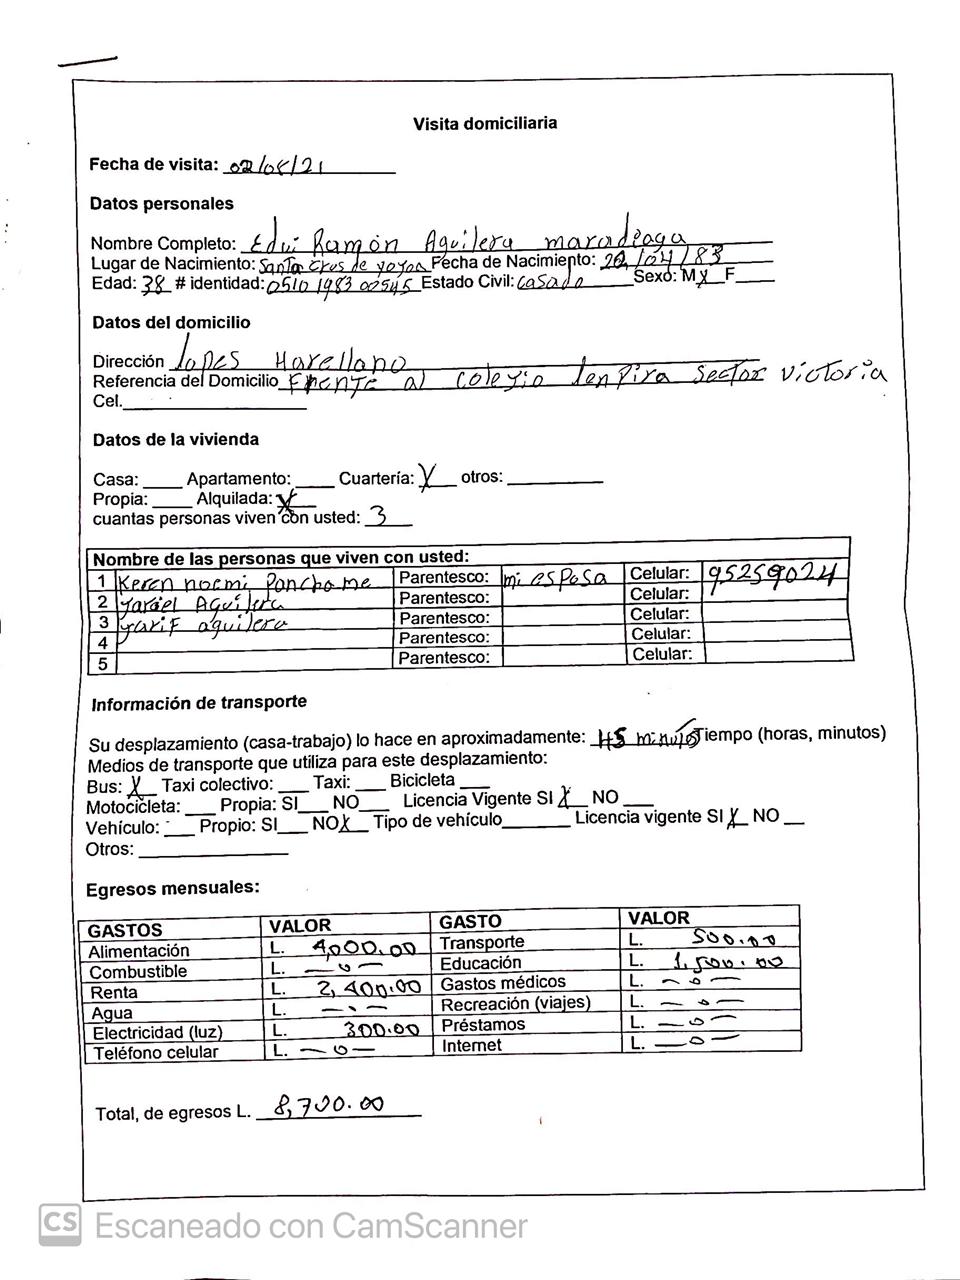 Visita domiciliaria
Fecha de visita: 02/08/21
Datos personales
Nombre Completo: Edwi Ramón Aguilera maradiaga
Lugar de Nacimiento: Santa Crus de yojoa Fecha de Nacimiento: 20/04/83
Edad: 38 # identidad: 0510 1983 00545 Estado Civil: casado Sexo: M X F___
Datos del domicilio
Dirección lopes Harellano
Referencia del Domicilio Frente al colegio lenpira sector victoria
Cel.___
Datos de la vivienda
Casa: ____ Apartamento: ____ Cuartería: X otros: ____
Propia: ____ Alquilada: X
cuantas personas viven con usted: 3
Nombre de las personas que viven con usted:
1 Keren noemi Ponchome Parentesco: mi esposa Celular: 95259024
2 yariel Aguilera Parentesco: Celular:
3 yarif aguilera Parentesco: Celular:
4 Parentesco: Celular:
5 Parentesco: Celular:
Información de transporte
Su desplazamiento (casa-trabajo) lo hace en aproximadamente: 45 minutos Tiempo (horas, minutos)
Medios de transporte que utiliza para este desplazamiento:
Bus: X Taxi colectivo: ___ Taxi: ___ Bicicleta ___
Motocicleta: ___ Propia: SI___ NO___ Licencia Vigente SI X NO ___
Vehículo: ___ Propio: SI___ NO X Tipo de vehículo______ Licencia vigente SI X NO __
Otros: ______
Egresos mensuales:
GASTOS VALOR GASTO VALOR
Alimentación L. 4,000.00 Transporte L. 500.00
Combustible L. —0— Educación L. 1,500.00
Renta L. 2,400.00 Gastos médicos L. —0—
Agua L. —0— Recreación (viajes) L. —0—
Electricidad (luz) L. 300.00 Préstamos L. —0—
Teléfono celular L. —0— Internet L. —0—
Total, de egresos L. 8,700.00
CS Escaneado con CamScanner